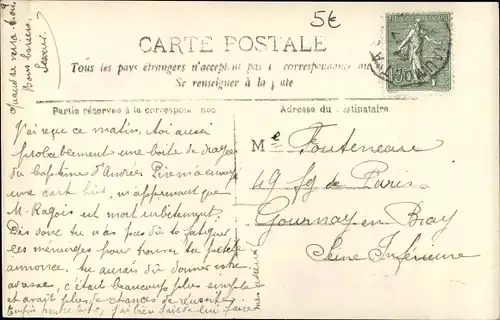 5€
CARTE POSTALE
Tous les pays étrangers n'acceptent pas la correspondance au
Se renseigner à la poste
Partie réservée à la correspondance
Adresse du destinataire
J'ai reçu ce matin, toi aussi
probablement une boite de dragées
du Capitaine d'Andrée. Père m'a envoyé
une carte hier, m'apprenant que
M. Ragois est mort subitement.
Dis donc tu n'as pas dû te fatiguer
les méninges pour trouver ta petite
annonce, tu aurais dû donner notre
adresse, c'était beaucoup plus simple
et avait plus de chances de réussite.
Enfin j'ai bien fait de lui faire
mes adieux
quand se verra-t-on
Bons baisers
Me Fouteneau
49 fg de Paris
Gournay en Bray
Seine Inférieure